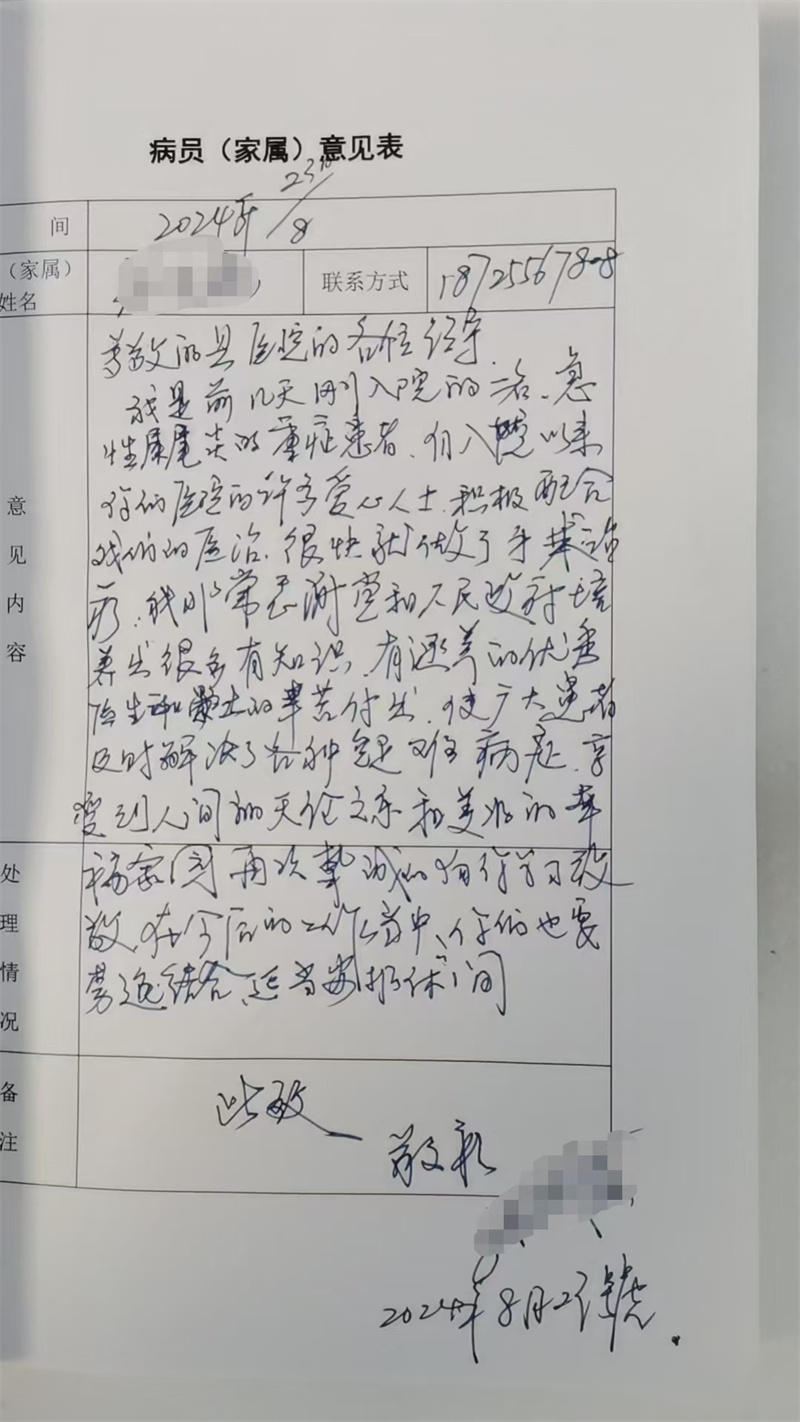 病员（家属）意见表
间 2024年 23/8
（家属）
姓名 联系方式 18725567808
尊敬的县医院的各位领导
我是前几天刚入院的一名、急
性阑尾炎的重症患者、自入院以来
你们医院的许多爱心人士、积极配合
我们的医治、很快就做了手术治
疗、我非常感谢党和人民政府培
养出很多有知识、有涵养的优秀
医生和 的辛苦付出、使广大患者
及时解决了各种 难病症、享
受到人间的天伦之乐和美好的幸
福家园 再次挚诚的向你们致
敬、在今后的工作当中、你们也要
劳逸结合、适当安排休 间
此致
敬礼
2024年8月2 号
意见内容
处理情况
备注